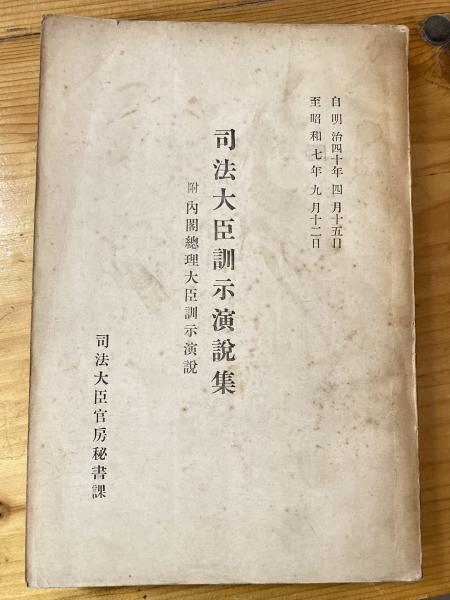 自明治四十年四月十五日
至昭和七年九月十二日
司法大臣訓示演說集
附內閣總理大臣訓示演說
司法大臣官房秘書課